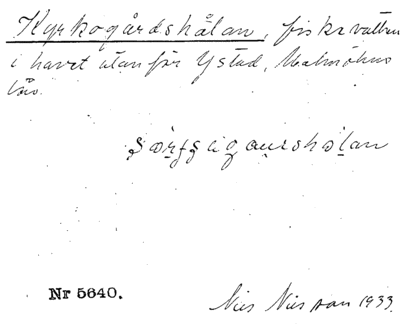 Kyrkogårdshålan, fiskevatten
i havet utanför Ystad, Malmöhus
län.
Nr 5640.
Nils Nilsson 1933.